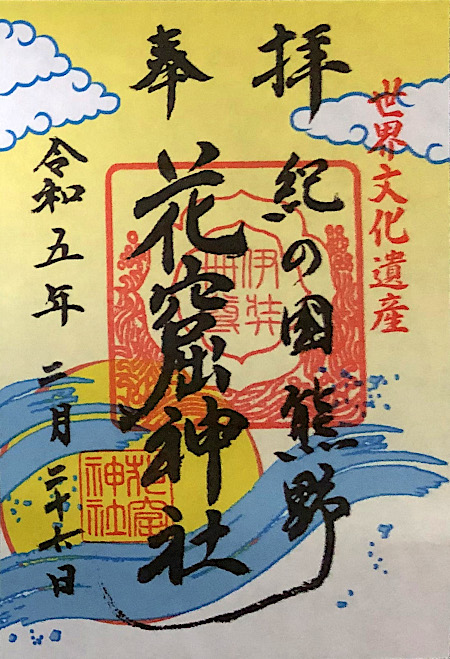 世界文化遺産
奉拝
紀の国熊野
花窟神社
令和五年二月二十六日
伊弉
冊尊
花窟
神社